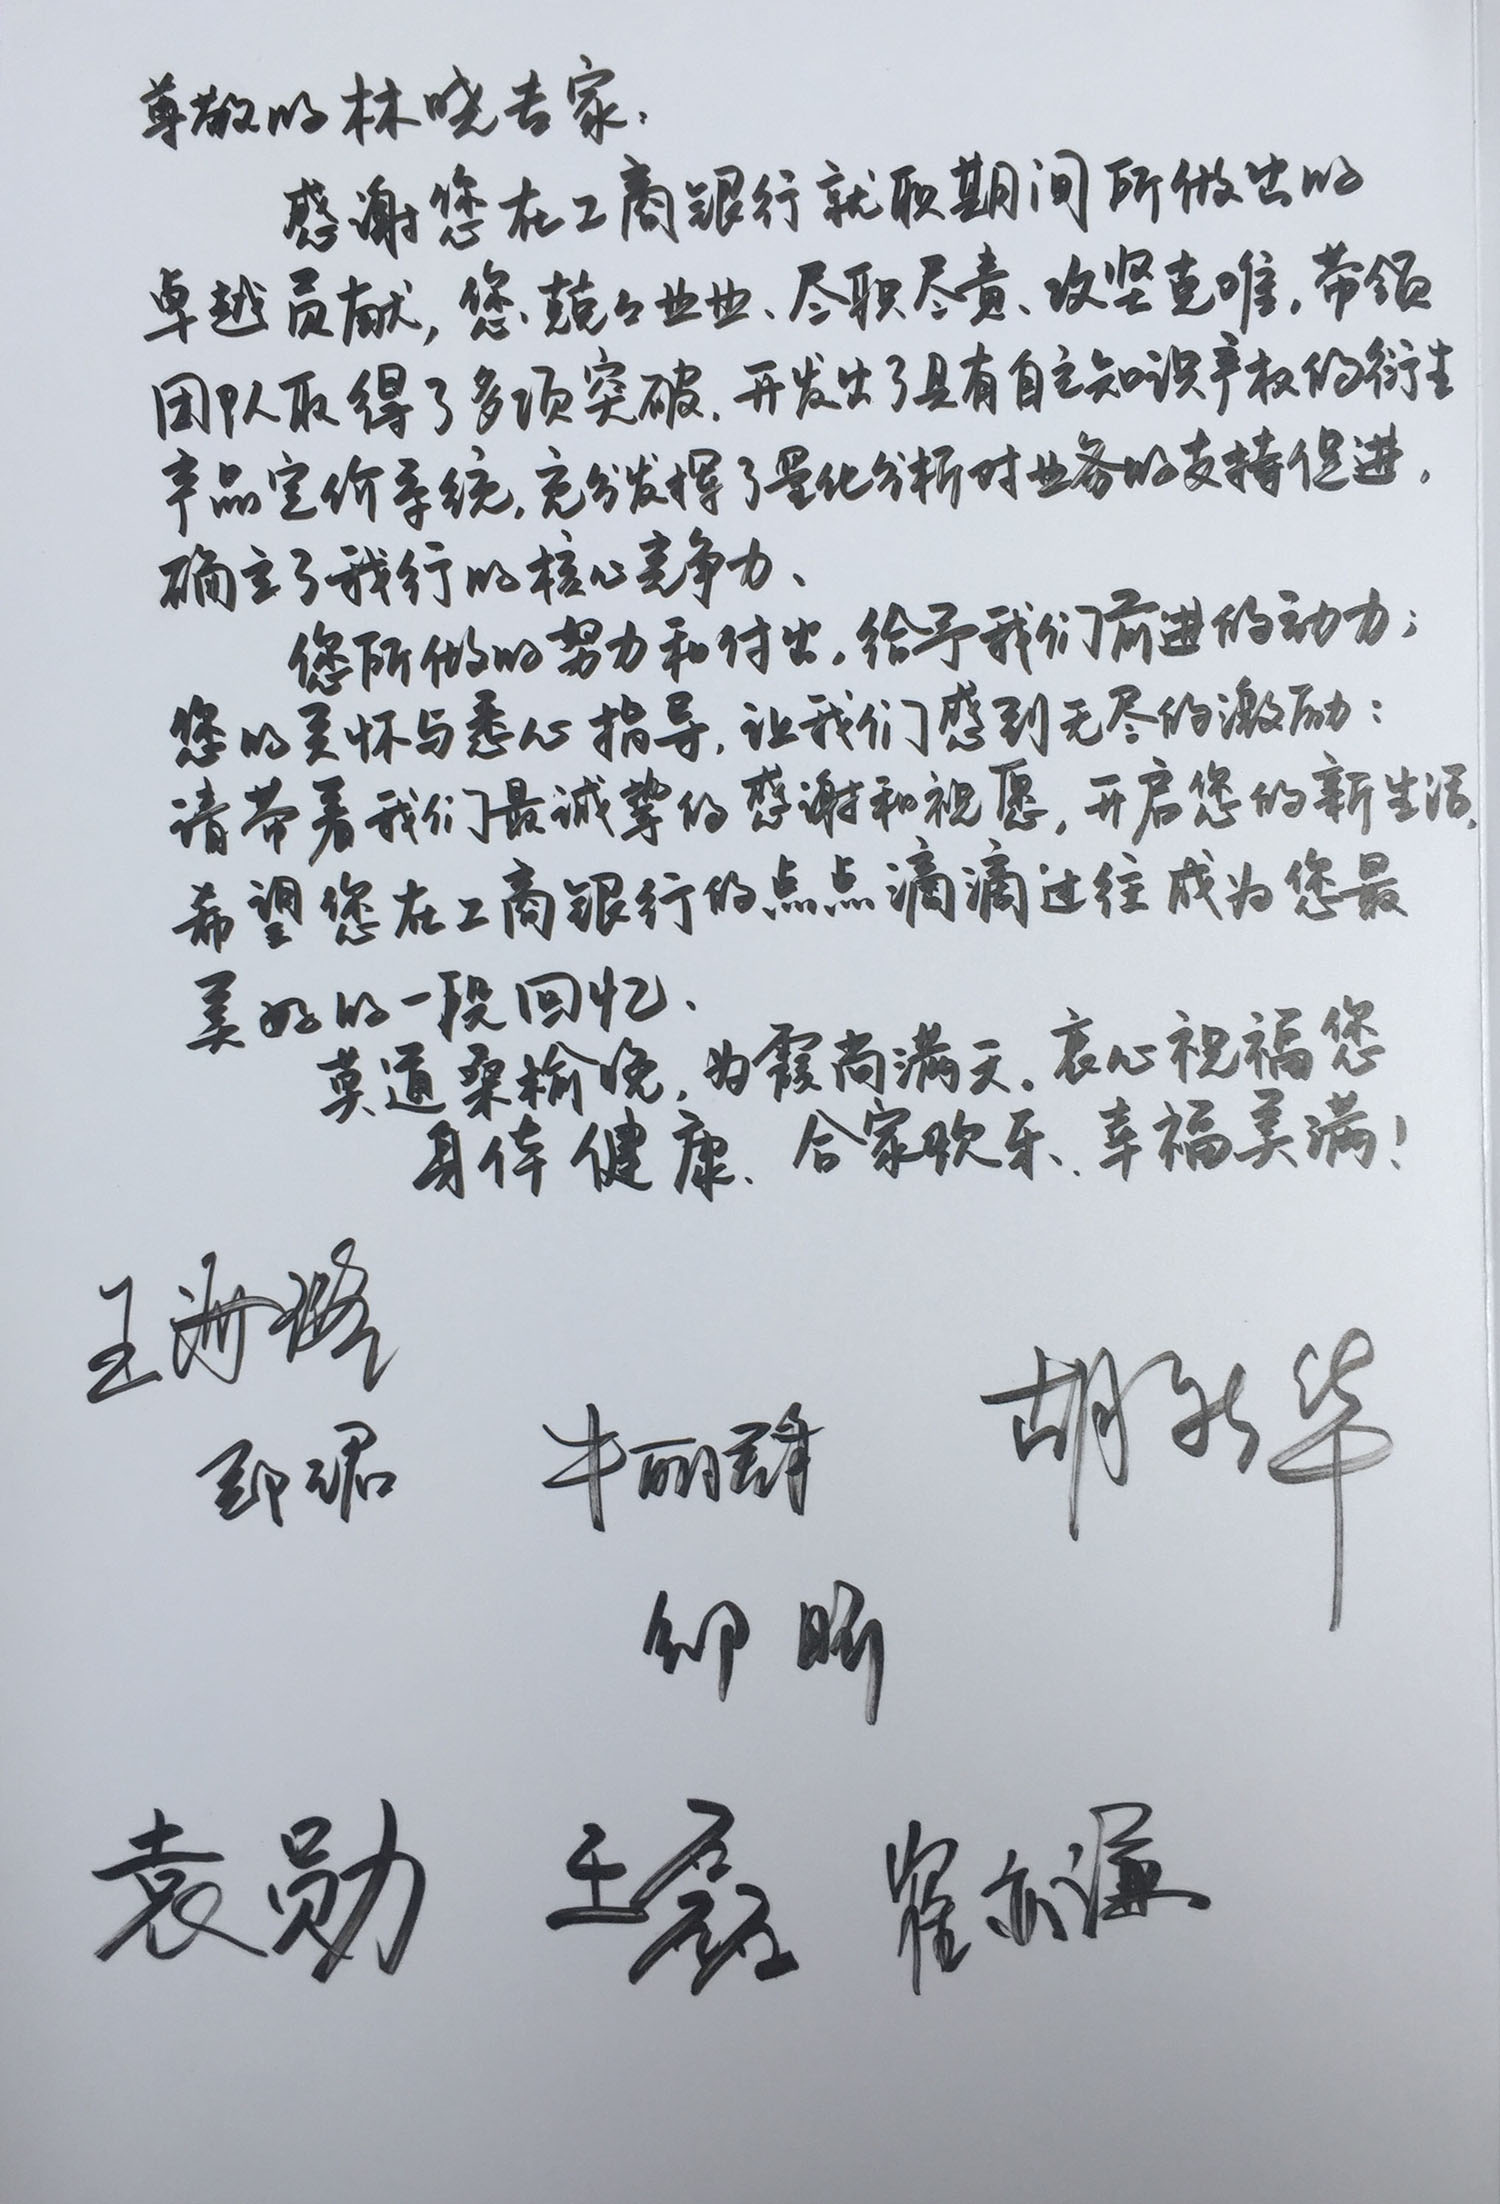 尊敬的林晓专家:
感谢您在工商银行就职期间所做出的
卓越贡献,您兢々业业、尽职尽责、攻坚克难,带领
团队取得了多项突破,开发出了具有自主知识产权的衍生
产品定价系统,充分发挥了量化分析对业务的支持促进,
确立了我行的核心竞争力、
您所做的努力和付出,给予我们前进的动力;
您的关怀与悉心指导,让我们感到无尽的激励;
请带着我们最诚挚的感谢和祝愿,开启您的新生活,
希望您在工商银行的点点滴滴过往成为您最
美好的一段回忆、
莫道桑榆晚,为霞尚满天。衷心祝福您
身体健康、合家欢乐、幸福美满!
王海璐
胡新华
郑珺 牛丽
邹
袁勋 王磊 翟亦谦